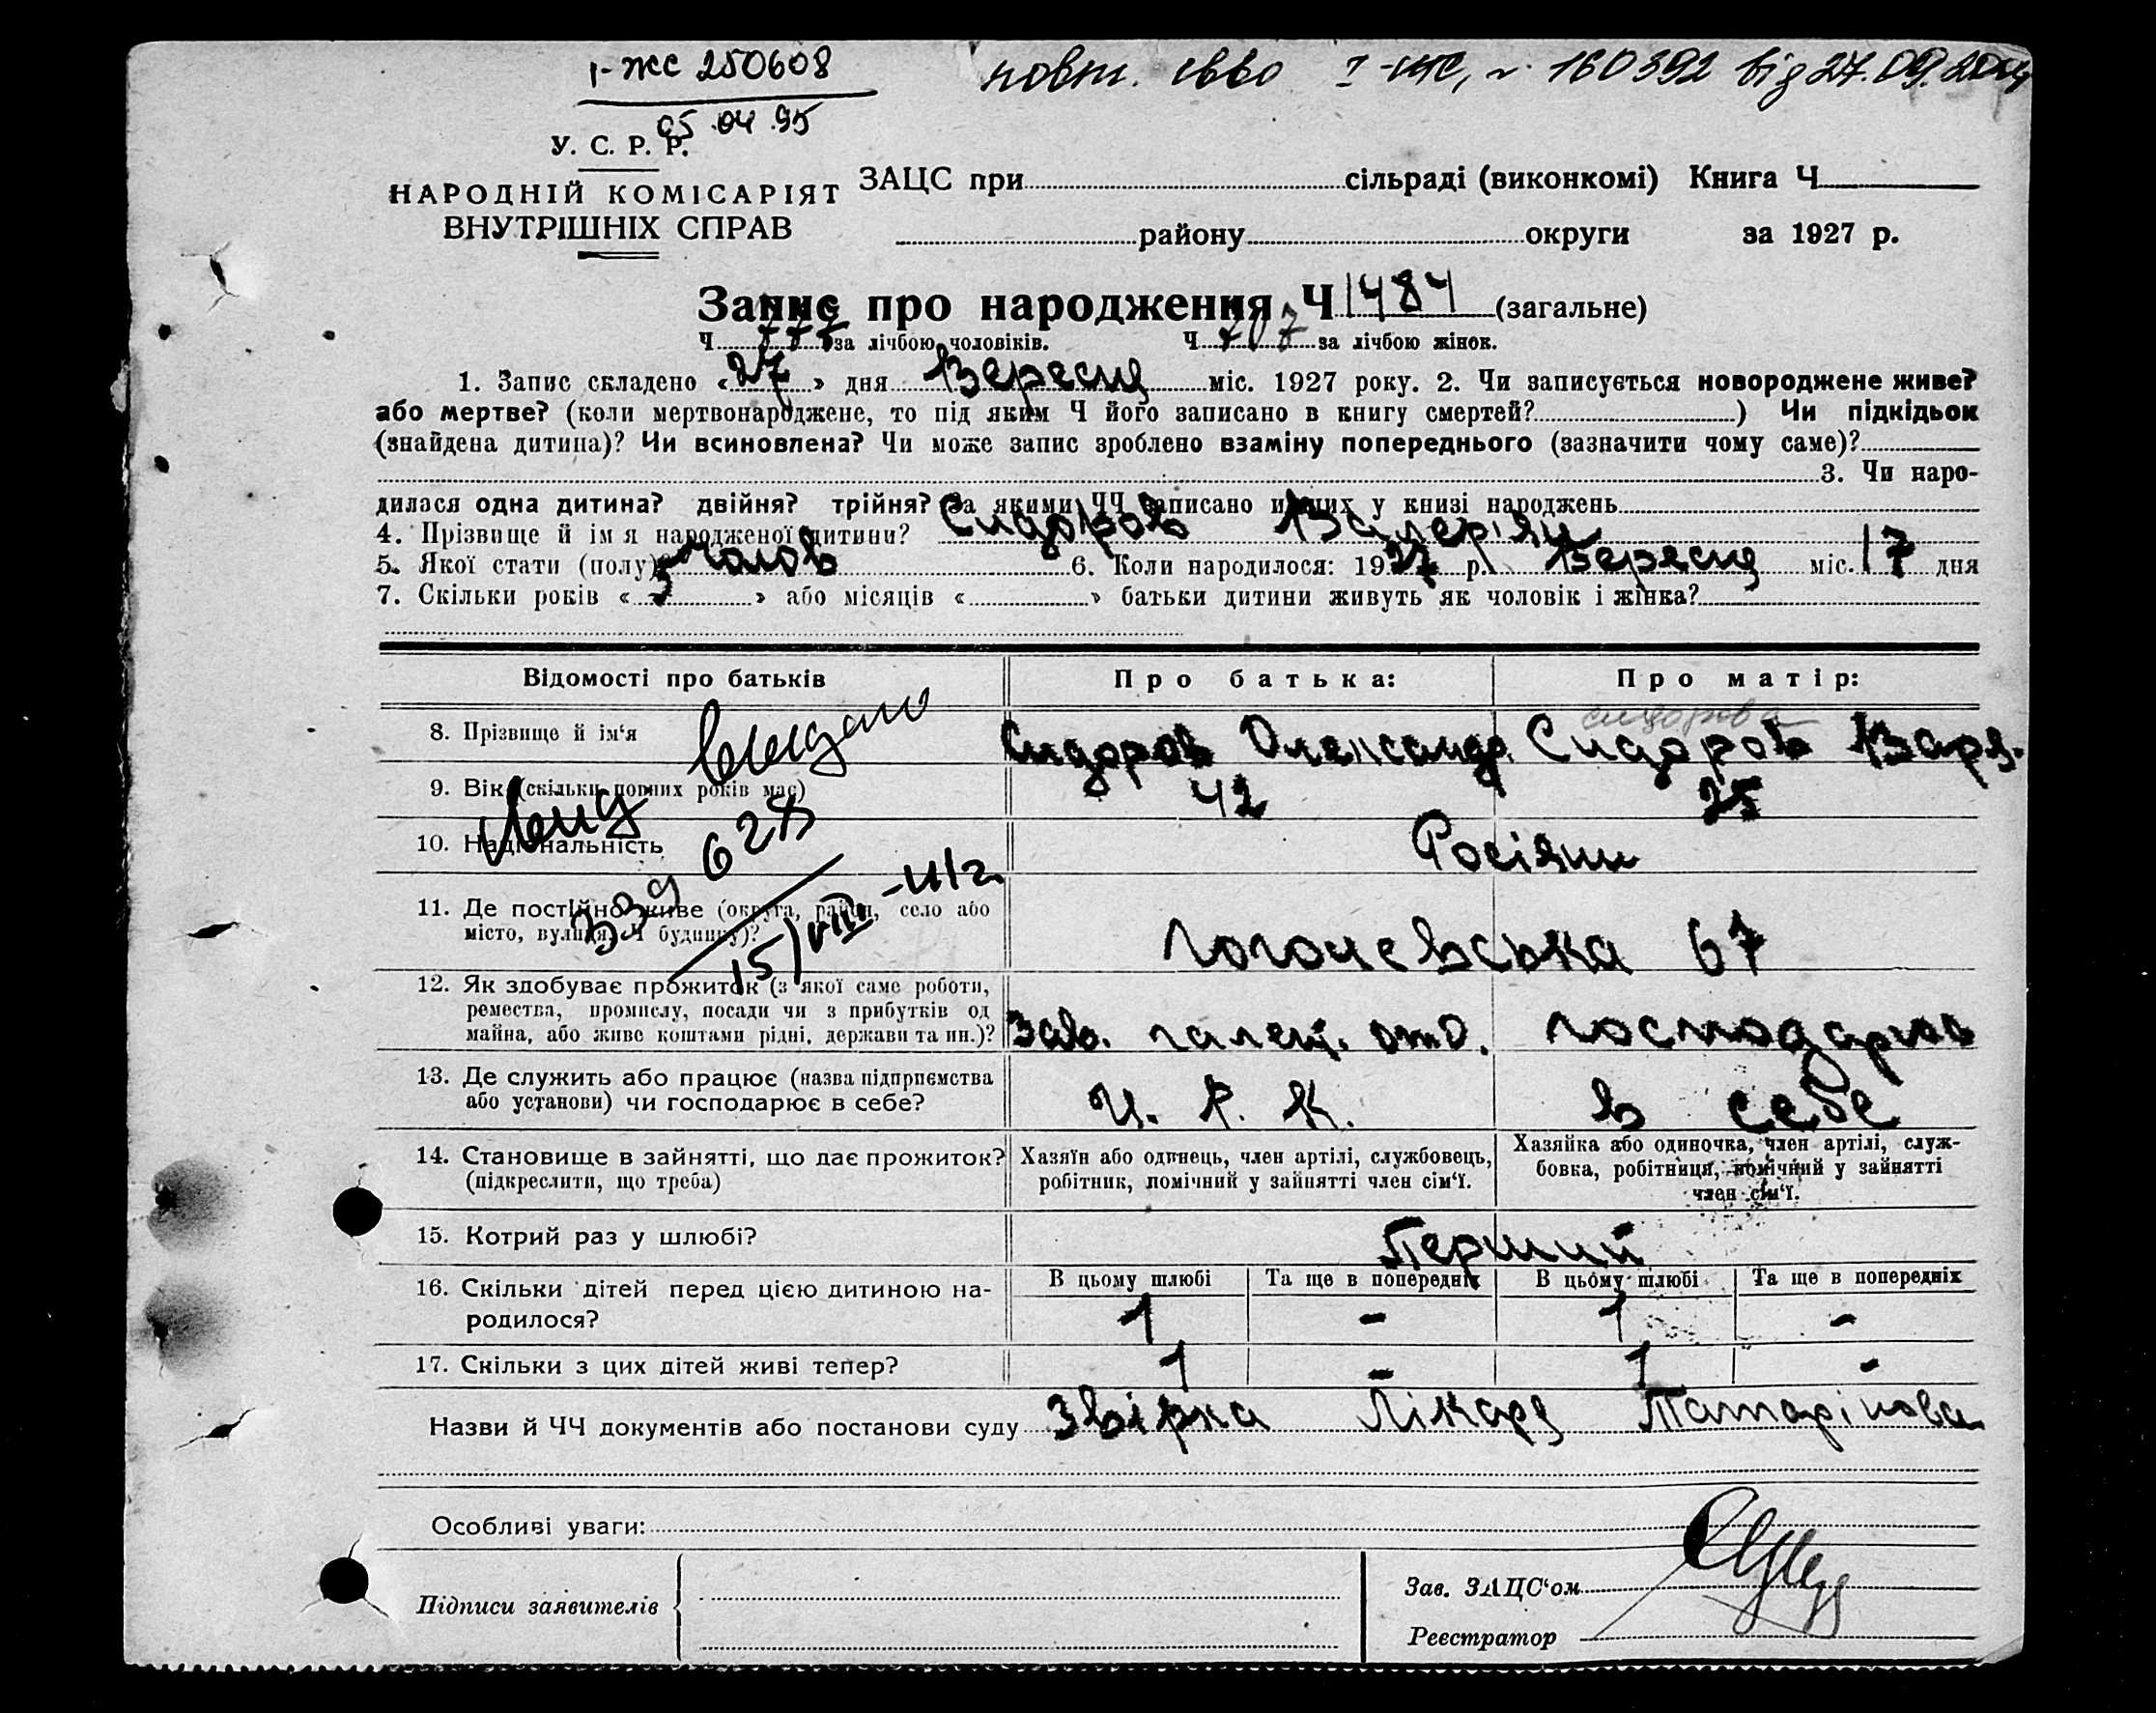 І-ЖС 250608
05.04.95
повт. св-во І-НС, № 160392 від 27.09.2004
У. С. Р. Р.
НАРОДНІЙ КОМІСАРІЯТ
ВНУТРІШНІХ СПРАВ
ЗАЦС при сільраді (виконкомі) Книга Ч
району округи за 1927 р.
Запис про народження Ч 1484 (загальне)
Ч 777 за лічбою чоловіків. Ч 707 за лічбою жінок.
1. Запис складено « 27 » дня Вересня міс. 1927 року. 2. Чи записується новороджене живе?
або мертве? (коли мертвонароджене, то під яким Ч його записано в книгу смертей? ) Чи підкідьок
(знайдена дитина)? Чи всиновлена? Чи може запис зроблено взаміну попереднього (зазначити чому саме)?
3. Чи наро-
дилася одна дитина? двійня? трійня? За якими ЧЧ записано инших у книзі народжень
4. Прізвище й ім я народженої дитини? Сидоров Валеріян
5. Якої стати (полу)? чолов 6. Коли народилося: 1927 р. Вересня міс. 17 дня
7. Скільки років « 5 » або місяців « » батьки дитини живуть як чоловік і жінка?
Відомості про батьків Про батька: Про матір:
сидорова
8. Прізвище й ім‘я Сидоров Олександр Сидоров Варв.
9. Вік (скільки повних років має) 42 25
10. Національність Росіяни
11. Де постійно живе (округа, район, село або
місто, вулиця, Ч будинку)? Гоголевська 67
12. Як здобуває прожиток (з якої саме роботи,
ремества, промислу, посади чи з прибутків од
майна, або живе коштами рідні, держави та ин.)? Зав. галент. отд. господарює
13. Де служить або працює (назва підприємства
або установи) чи господарює в себе? Ц. Р. К. в себе
14. Становище в зайнятті, що дає прожиток?
(підкреслити, що треба)
Хазяїн або одинець, член артілі, службовець,
робітник, помічний у зайнятті член сім‘ї.
Хазяйка або одиночка, член артілі, служ-
бовка, робітниця, помічний у зайнятті
член сім‘ї.
15. Котрий раз у шлюбі? Перший
В цьому шлюбі Та ще в попередніх В цьому шлюбі Та ще в попередніх
16. Скільки дітей перед цією дитиною на-
родилося? 1 - 1 -
17. Скільки з цих дітей живі тепер? 1 - 1 -
Назви й ЧЧ документів або постанови суду Звірка Лікаря Татарінова
Особливі уваги:
Підписи заявителів
Зав. ЗАЦС‘ом
Реєстратор